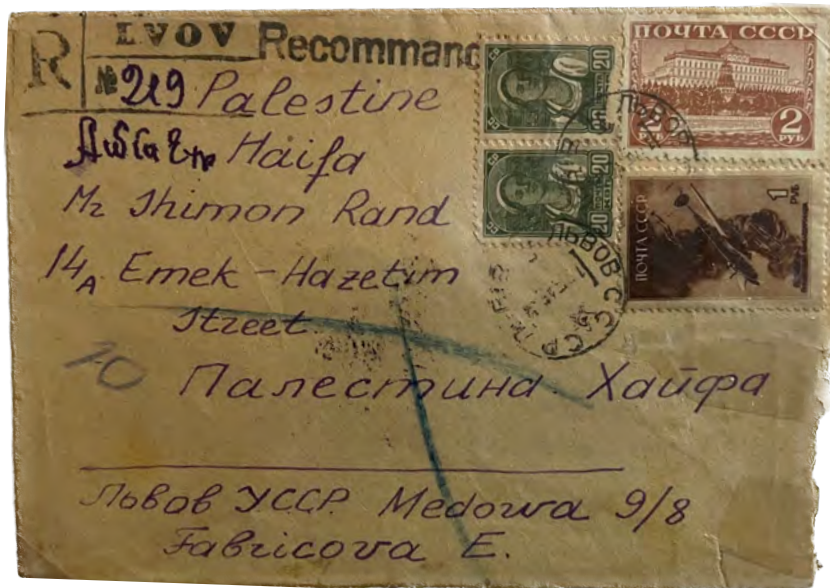 R LVOV Recommand
№ 219 Palestine
Haifa
Mr Shimon Rand
14A Emek-Hazetim
Street
10
Палестина Хайфа
Львов УССР Medowa 9/8
Fabricova E.
ПОЧТА СССР
2 РУБ
ПОЧТА СССР
1 РУБ
20
20
ЛЬВОВ
ЛЬВОВ СССР